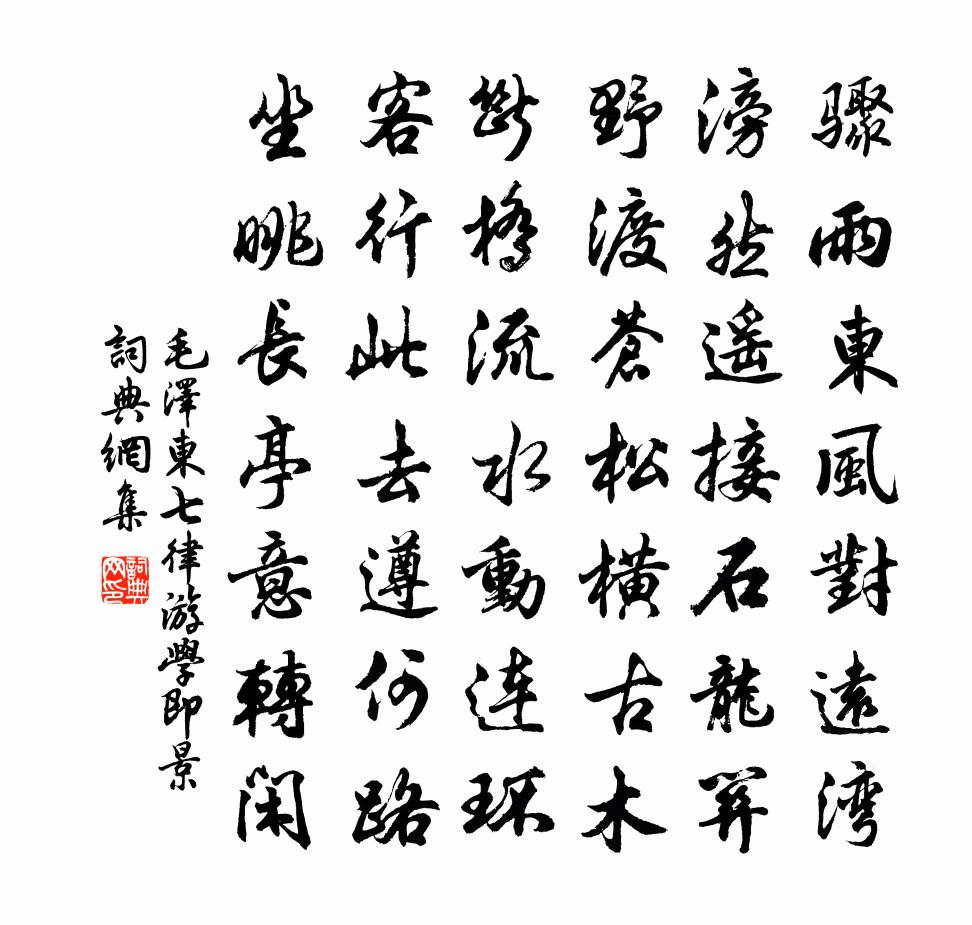 驟雨東風對遠湾
滂然遙接石龍關
野渡蒼松橫古木
斷橋流水動連環
客行此去遵何路
坐眺長亭意轉閑
毛澤東七律游學即景
詞典網集
詞典网印